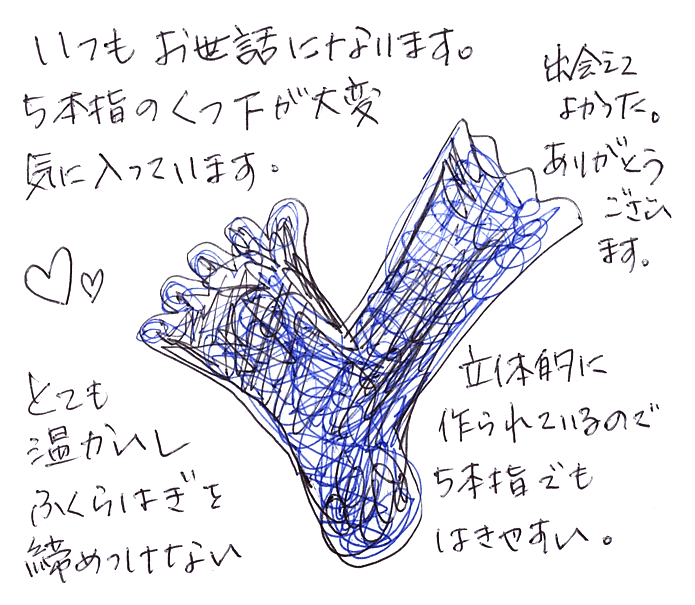 いつも お世話になります。
5本指のくつ下が大変
気に入っています。
出会えて
よかった。
ありがとう
ござい
ます。
とても
温かいし
ふくらはぎを
締めつけない
立体的に
作られているので
5本指でも
はきやすい。